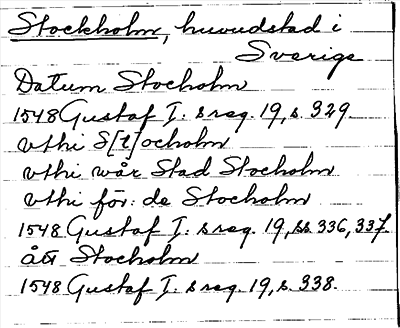 Stockholm, huvudstad i
Sverige
Datum Stocholm
1548 Gustaf I:s reg. 19, s. 329.
vthi S[t]ocholm
vthi wår Stad Stocholm
vthi för:de Stocholm
1548 Gustaf I:s reg. 19, ss. 336, 337.
ått Stocholm
1548 Gustaf I:s reg. 19, s. 338.